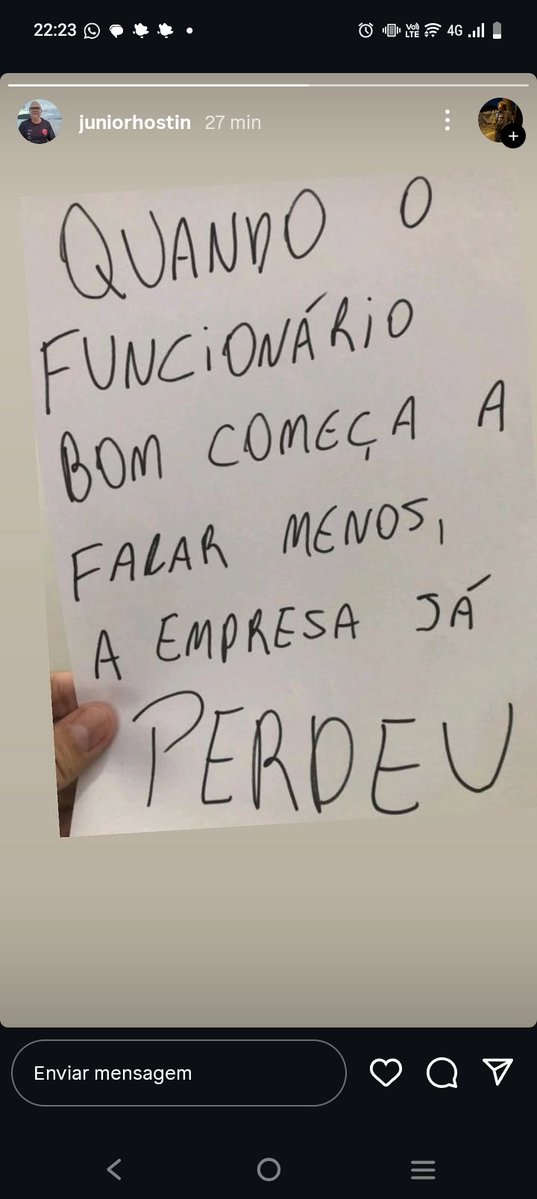 22:23
Vo)) LTE 4G
juniorhostin 27 min
QUANDO O
FUNCIONÁRIO
BOM COMEÇA A
FALAR MENOS,
A EMPRESA JÁ
PERDEU
Enviar mensagem